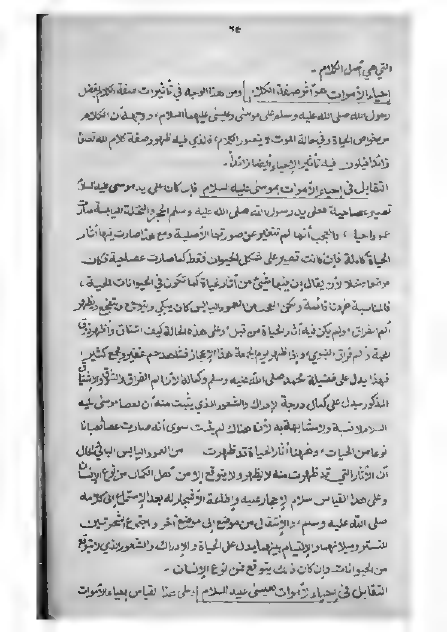 ٦٤
التي هي أصل الكلام -
إحياء الأموات هو أثر صفة الكلام ومن هذا الوجه في تأثيرات صفة الكلام بفضل
رسول الله صلى الله عليه وسلم على موسى وعيسى عليهما السلام، ووجهه أن الكلام
من خواص الحياة وفي حالة الموت لا يتصور الكلام، فالذي فيه ظهور صفة كلام الله تعالى
زائدا فيكون فيه تأثير الإحياء أيضا زائدا -
التقابل في إحياء الأموات بموسى عليه السلام فإن كان على يد موسى عليه السلام
تصير عصا حية فعلى يد رسول الله صلى الله عليه وسلم الحجر والنخلة اليابسة صارت
حياء، والعجب أنها لم تتغير عن صورتها الأصلية ومع هذا صارت فيها آثار
الحياة كاملة فإن كانت تصير على شكل الحيوان فقط كما صارت عصا حية فكان
لأن يقال إن فيها شيء من آثار حياة كما تكون في الحيوانات الحية،
اليابس كان يبكي
ألم الفراق ولم يكن فيه أثر الحياة من قبل وعلى هذه الحالة كيف اشتاق وأظهر ذوق
المحبة وألم فراق النبوي، وإذا ظهر يوم الجمعة هذا الإعجاز عند جم غفير وجمع كثير،
فهذا يدل على فضيلة محمد صلى الله عليه وسلم وكماله لأن ألم الفراق والشوق والاشتياق
المذكور يدل على كمال درجة الإدراك والشعور الذي يثبت منه أن لعصا موسى عليه
السلام لا نسبة ولا مشابهة به لأن هناك لم يثبت سوى أنه صارت عصا ثعبانا
نوعا من الحيات، وههنا آثار الحياة قد ظهرت من العمود اليابس البالي الحال
أن الآثار التي قد ظهرت منه لا يظهر ولا يتوقع إلا من أهل الكمال من نوع الإنسان
وعلى هذا القياس سلام الأحجار عليه وإطاعة الأشجار له بعد الاستماع إلى كلامه
صلى الله عليه وسلم، والانتقال من موضع إلى موضع آخر واجتماع الشجرتين
للتستر وميلانهما والالتيام بينهما يدل على الحياة والإدراك والشعور الذي لا يتوقع
من الحيوانات وإن كان ذلك يتوقع فمن نوع الإنسان -
التقابل في إحياء الأموات بعيسى عليه السلام وعلى هذا القياس إحياء الأموات